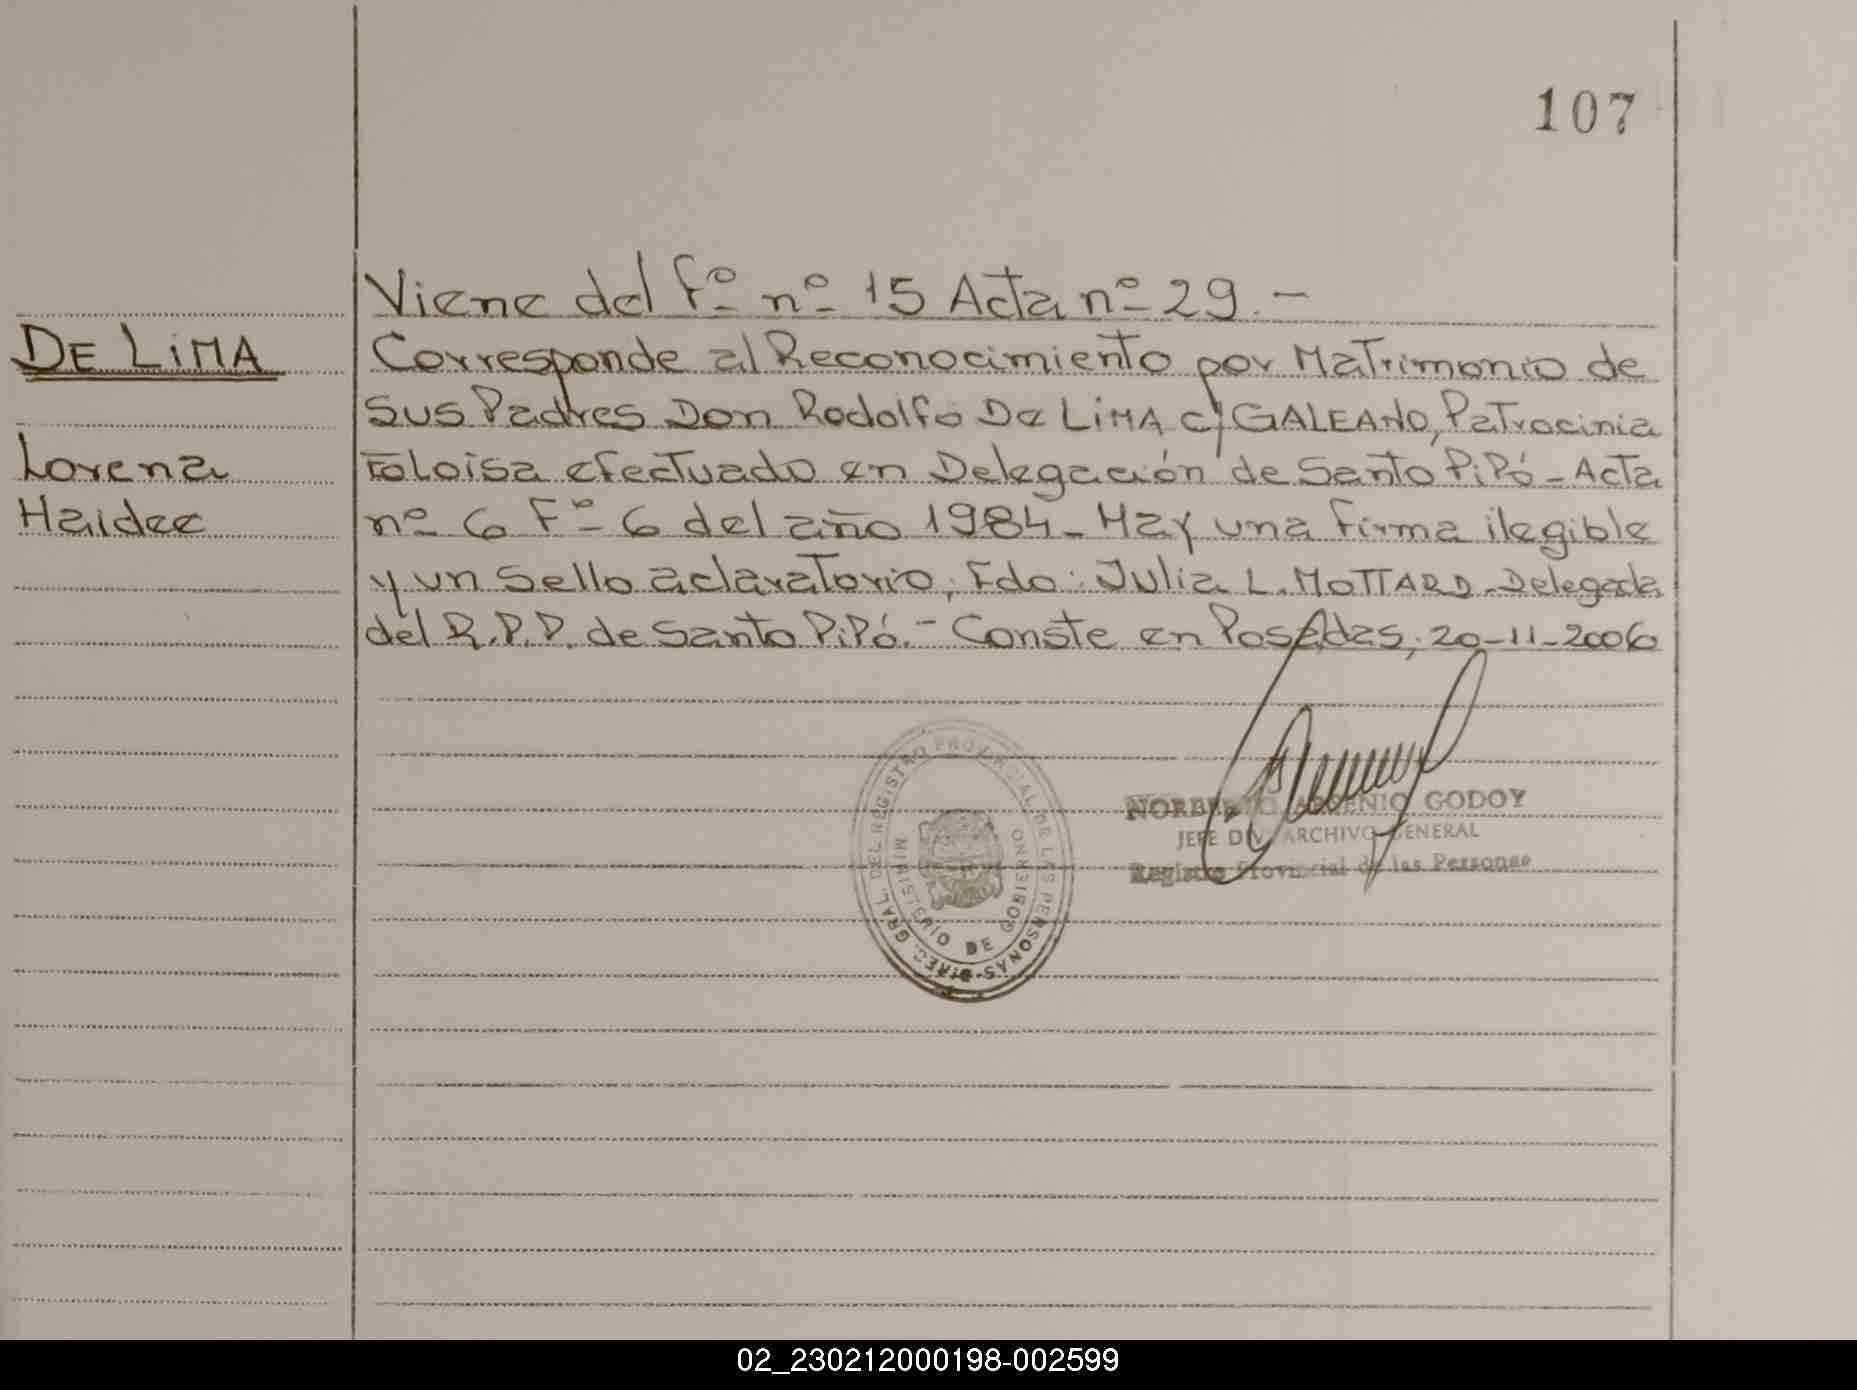 107
Viene del Fº nº 15 Acta nº 29.-
DE LIMA
Corresponde al Reconocimiento por Matrimonio de
Sus Padres Don Rodolfo De LIMA c/ GALEANO, Patrocinia
Lorena
Eloisa efectuado en Delegación de Santo Pipó - Acta
Haidee
nº 6 Fº 6 del año 1984 - Hay una firma ilegible
y un Sello aclaratorio; Fdo: Julia L. MOTTARD - Delegada
del R.P.P. de Santo Pipó.- Conste en Posadas, 20-11-2006
NORBERTO ARSENIO GODOY
JEFE DIV. ARCHIVO GENERAL
Registro Provincial de las Personas
DIREC. GRAL. DEL REGISTRO PROVINCIAL DE LAS PERSONAS
MINISTERIO DE GOBIERNO
02_230212000198-002599